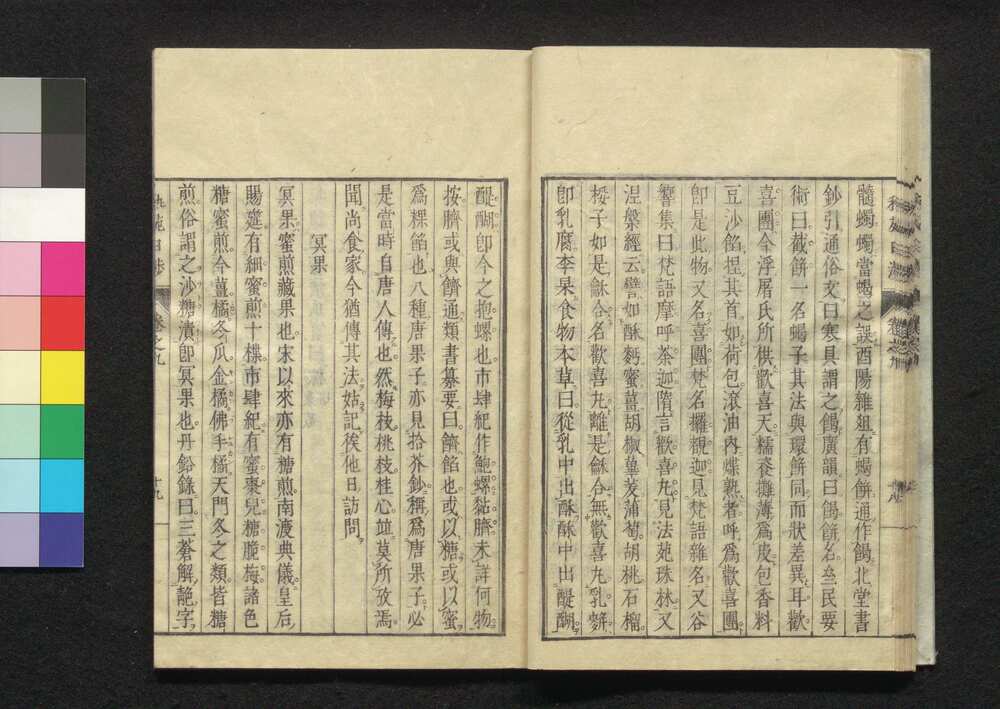 髓蠋蠋當蝎之誤酉陽雜俎有蝎餅通作餲北堂書
鈔引通俗文曰寒具謂之餲廣韻曰餲餅名叁民要
術曰截餅一名蝎子其法與環餅同而狀差異耳歡
喜團今浮屠氏所供歡喜天糯粢攤薄爲皮包香料
豆沙餡捏其首如荷包滾油內煠熟者呼爲歡喜團
即是此物又名喜團梵名羅覩迦見梵語雜名又谷
響集曰梵語摩呼荼迦隋言歡喜丸見法苑珠林又
涅槃經云譬如酥麪蜜薑胡椒蓽茇蒲萄胡桃石榴
桵子如是龢合名歡喜丸離是龢合無歡喜丸乳餅
即乳腐李杲食物本草曰從乳中出酥酥中出醍醐
醍醐卽今之抱螺也市肆紀作鮑螺黏臍未詳何物
按臍或與餠通類書纂要曰餠餡也或以糖或以蜜
爲粿餡也八種唐果子亦見拾芥鈔稱爲唐果子必
是當時自唐人傳也然梅枝桃枝桂心竝莫所攷焉
聞尚食家今猶傳其法姑記俟他日訪問
冥果
冥果蜜煎藏果也宋以來亦有糖煎南渡典儀皇后
賜筵有細蜜煎十楪市肆紀有蜜棗兒糖脆梅諸色
糖蜜煎今薑橘冬瓜金橘佛手橘天門冬之類皆糖
煎俗謂之沙糖漬卽冥果也丹鉛錄曰三蒼解䩞字
卷之九
十九